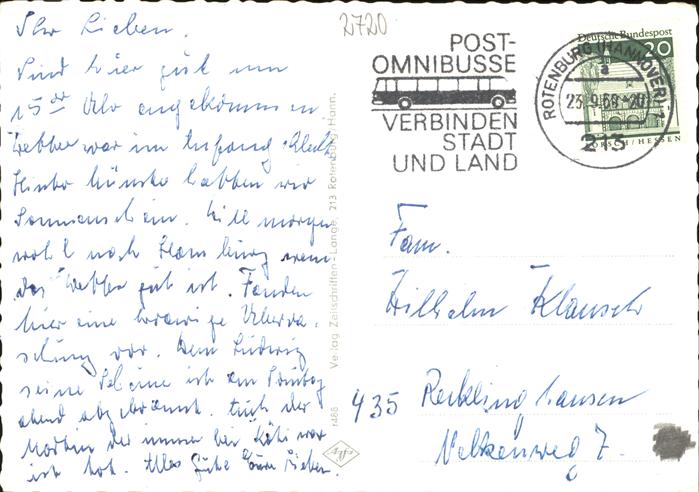 Ihr Lieben.
Sind hier gut um
15 00 Uhr angekommen
Wetter war im Anfang schlecht
Hinter Münster hatten wir
Sonnenschein. Will morgen
wohl nach Hamburg wenn
das Wetter gut ist. Fanden
hier eine traurige Überra-
schung vor. Dem Ludwig
seine Scheune ist am Sonntag
abend abgebrannt. Auch der
der immer bei war
ist tot. Alles Gute Eure Lieben.
2720
POST-
OMNIBUSSE
VERBINDEN
STADT
UND LAND
ROTENBURG (HANNOVER) 1
a
23.9.69-20
213
Deutsche Bundespost
20
LORSCH/HESSEN
Verlag Zeitschriften-Lange, 213 Rotenburg Hann.
r488
Agfa
Fam.
Wilhelm Klausch
435 Recklinghausen
Nelkenweg 7.